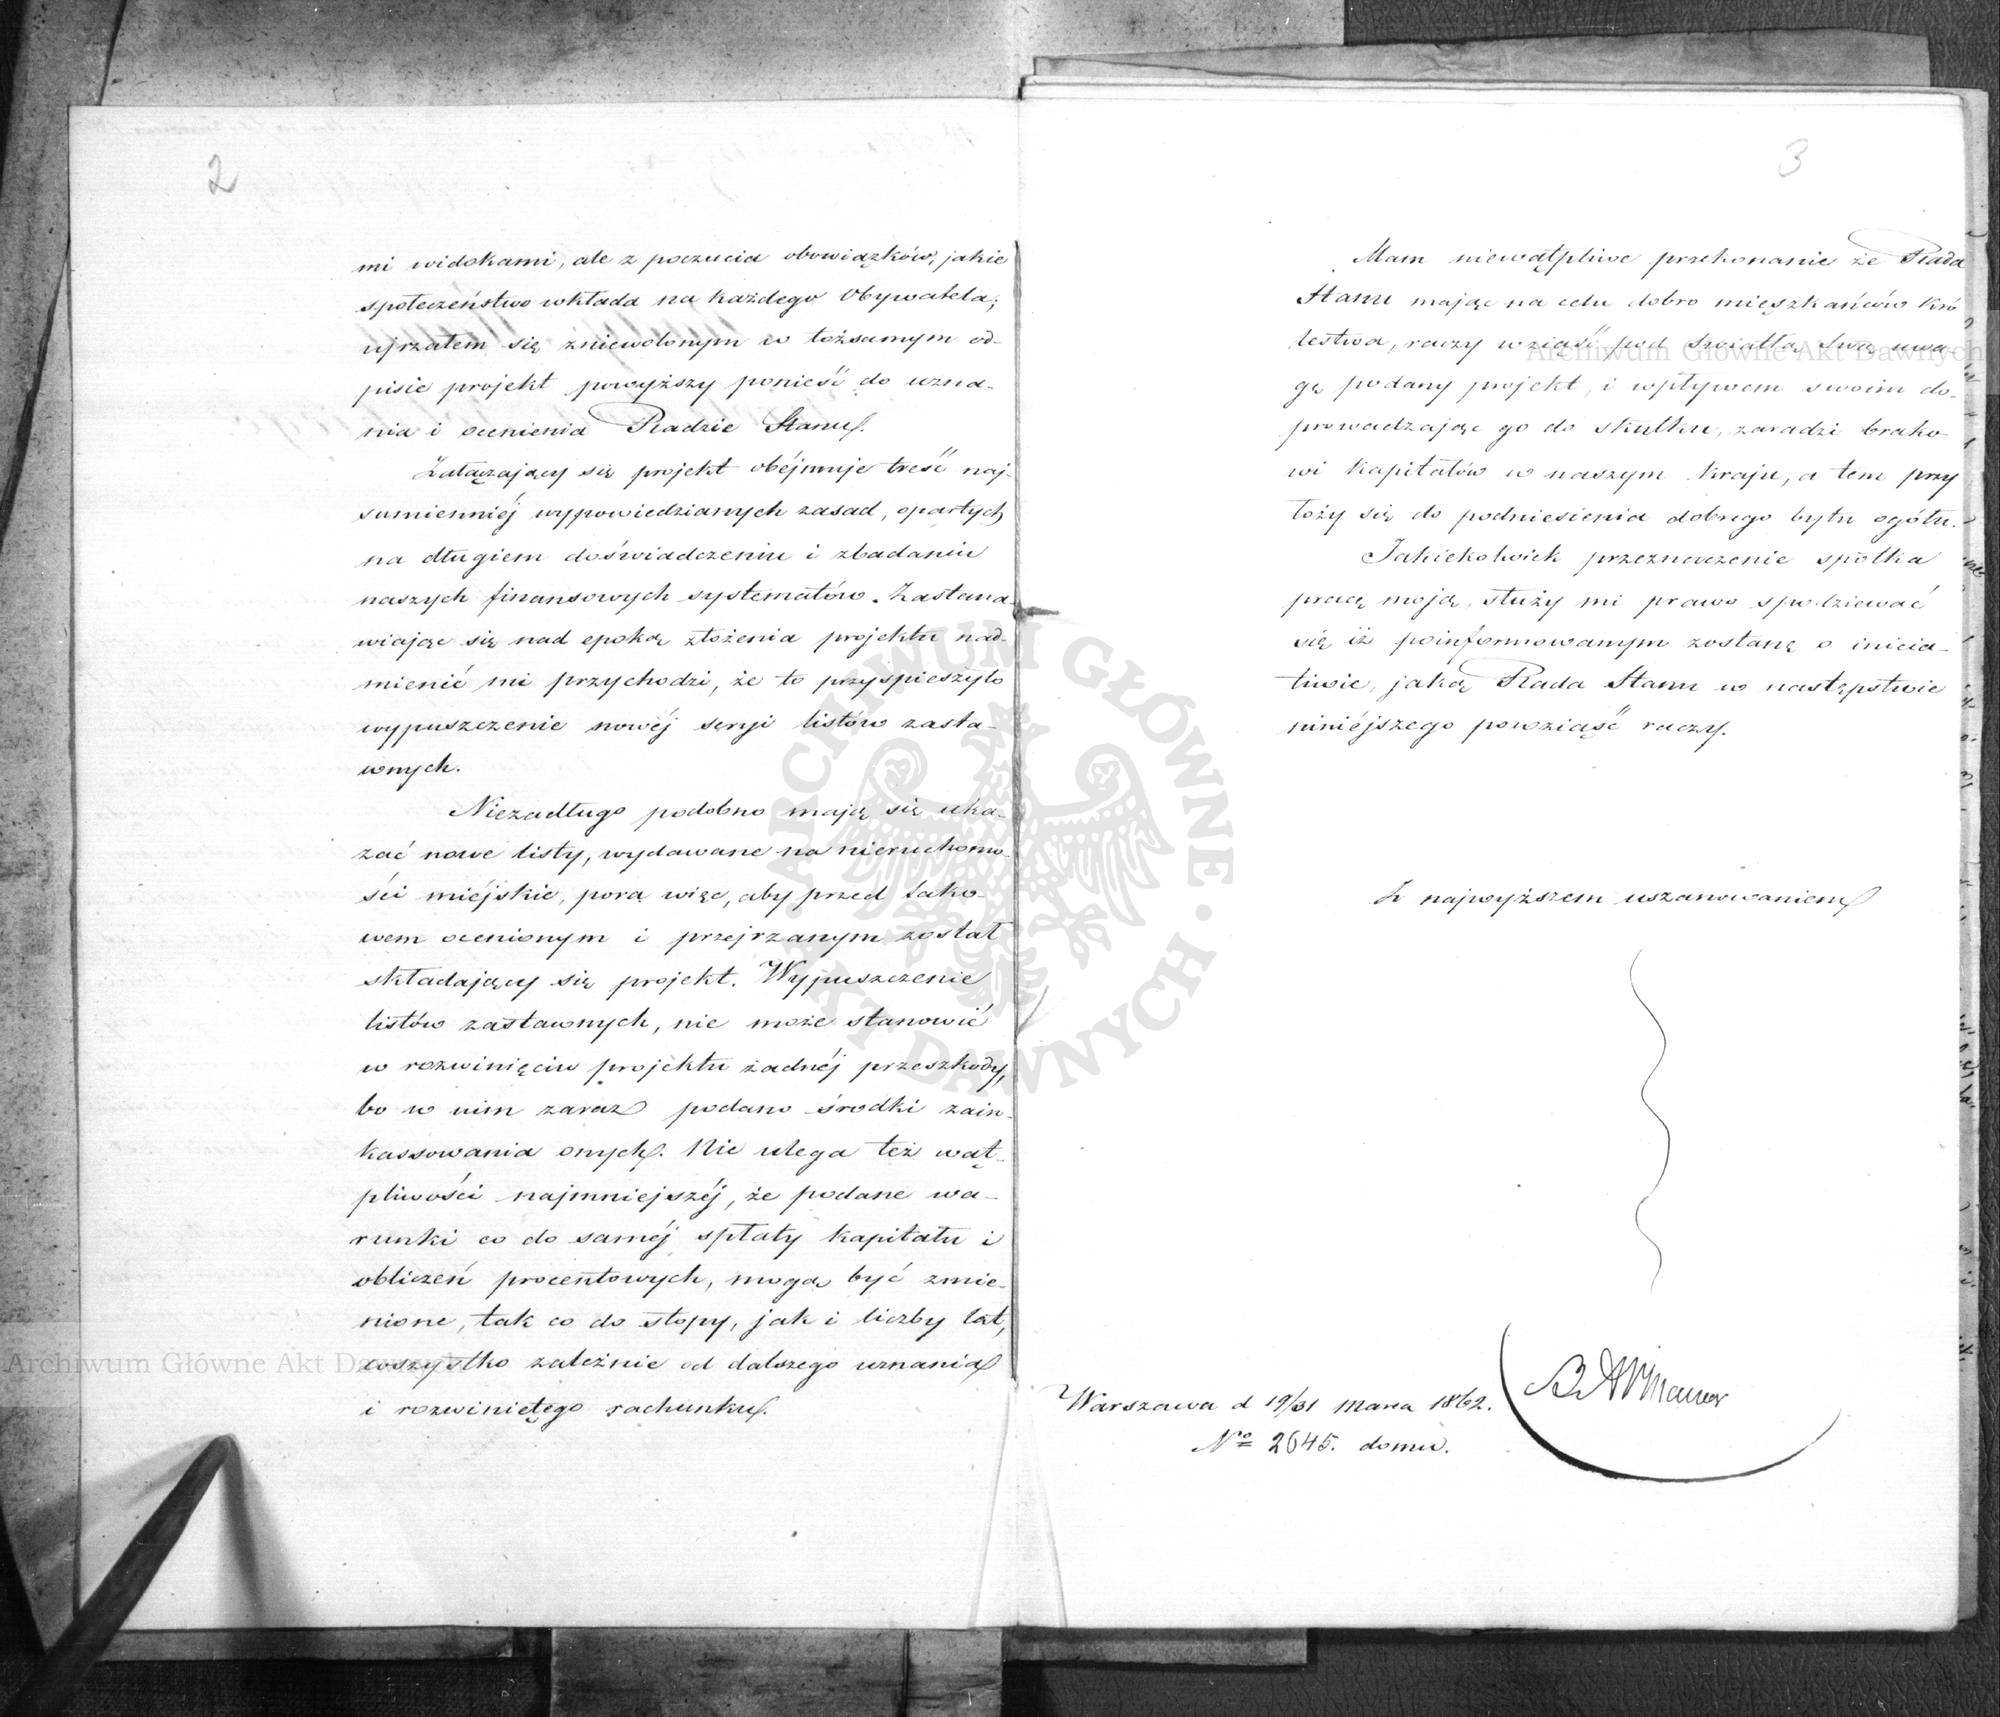 2
mi widokami, ale z poczucia obowiązków, jakie
społeczeństwo wkłada na każdego Obywatela;
ujrzałem się zniewolonym w tożsamym od-
pisie projekt powyższy ponieść do uzna-
nia i ocenienia Radzie Stanu.
Załączający się projekt obéjmuje treść naj-
sumienniéj wypowiedzianych zasad, opartych
na długiem doświadczeniu i zbadaniu
naszych finansowych systematów. Zastana-
wiając się nad epoką złożenia projektu nad-
mienić mi przychodzi, że to przyspieszyło
wypuszczenie nowéj seryi listów zasta-
wnych.
Niezadługo podobno mają się uka-
zać nowe listy, wydawane na nieruchomo-
ści miéjskie, pora więc, aby przed tako-
wem ocenionym i przejrzanym został
składający się projekt. Wypuszczenie
listów zastawnych, nie może stanowić
w rozwinięciu projektu żadnéj przeszkody,
bo w nim zaraz podano środki zain-
kassowania onych. Nie ulega też wąt-
pliwości najmniejszéj, że podane wa-
runki co do saméj spłaty kapitału i
obliczeń procentowych, mogą być zmie-
nione, tak co do stopy, jak i liczby lat,
wszystko zależnie od dalszego uznania
i rozwiniętego rachunku.
3
Mam niewątpliwe przekonanie że Rada
Stanu mając na celu dobro mieszkańców Kró
lestwa, raczy wziąść pod światłą Swą uwa
gę podany projekt, i wpływem swoim do-
prowadzając go do skutku, zaradzi brako-
wi kapitałów w naszym kraju, a tem przy
łoży się do podniesienia dobrego bytu ogółu.
Jakiekolwiek przeznaczenie spotka
pracę moją, służy mi prawo spodziewać
się iż poinformowanym zostanę o inicia-
tiwie, jaką Rada Stanu w następstwie
niniéjszego powziąść raczy.
Z najwyższem uszanowaniem
Warszawa d 19/31 Marca 1862.
No 2645. domu.
ARCHIWUM GŁÓWNE AKT DAWNYCH
Archiwum Główne Akt Dawnych
Archiwum Główne Akt Dawnych